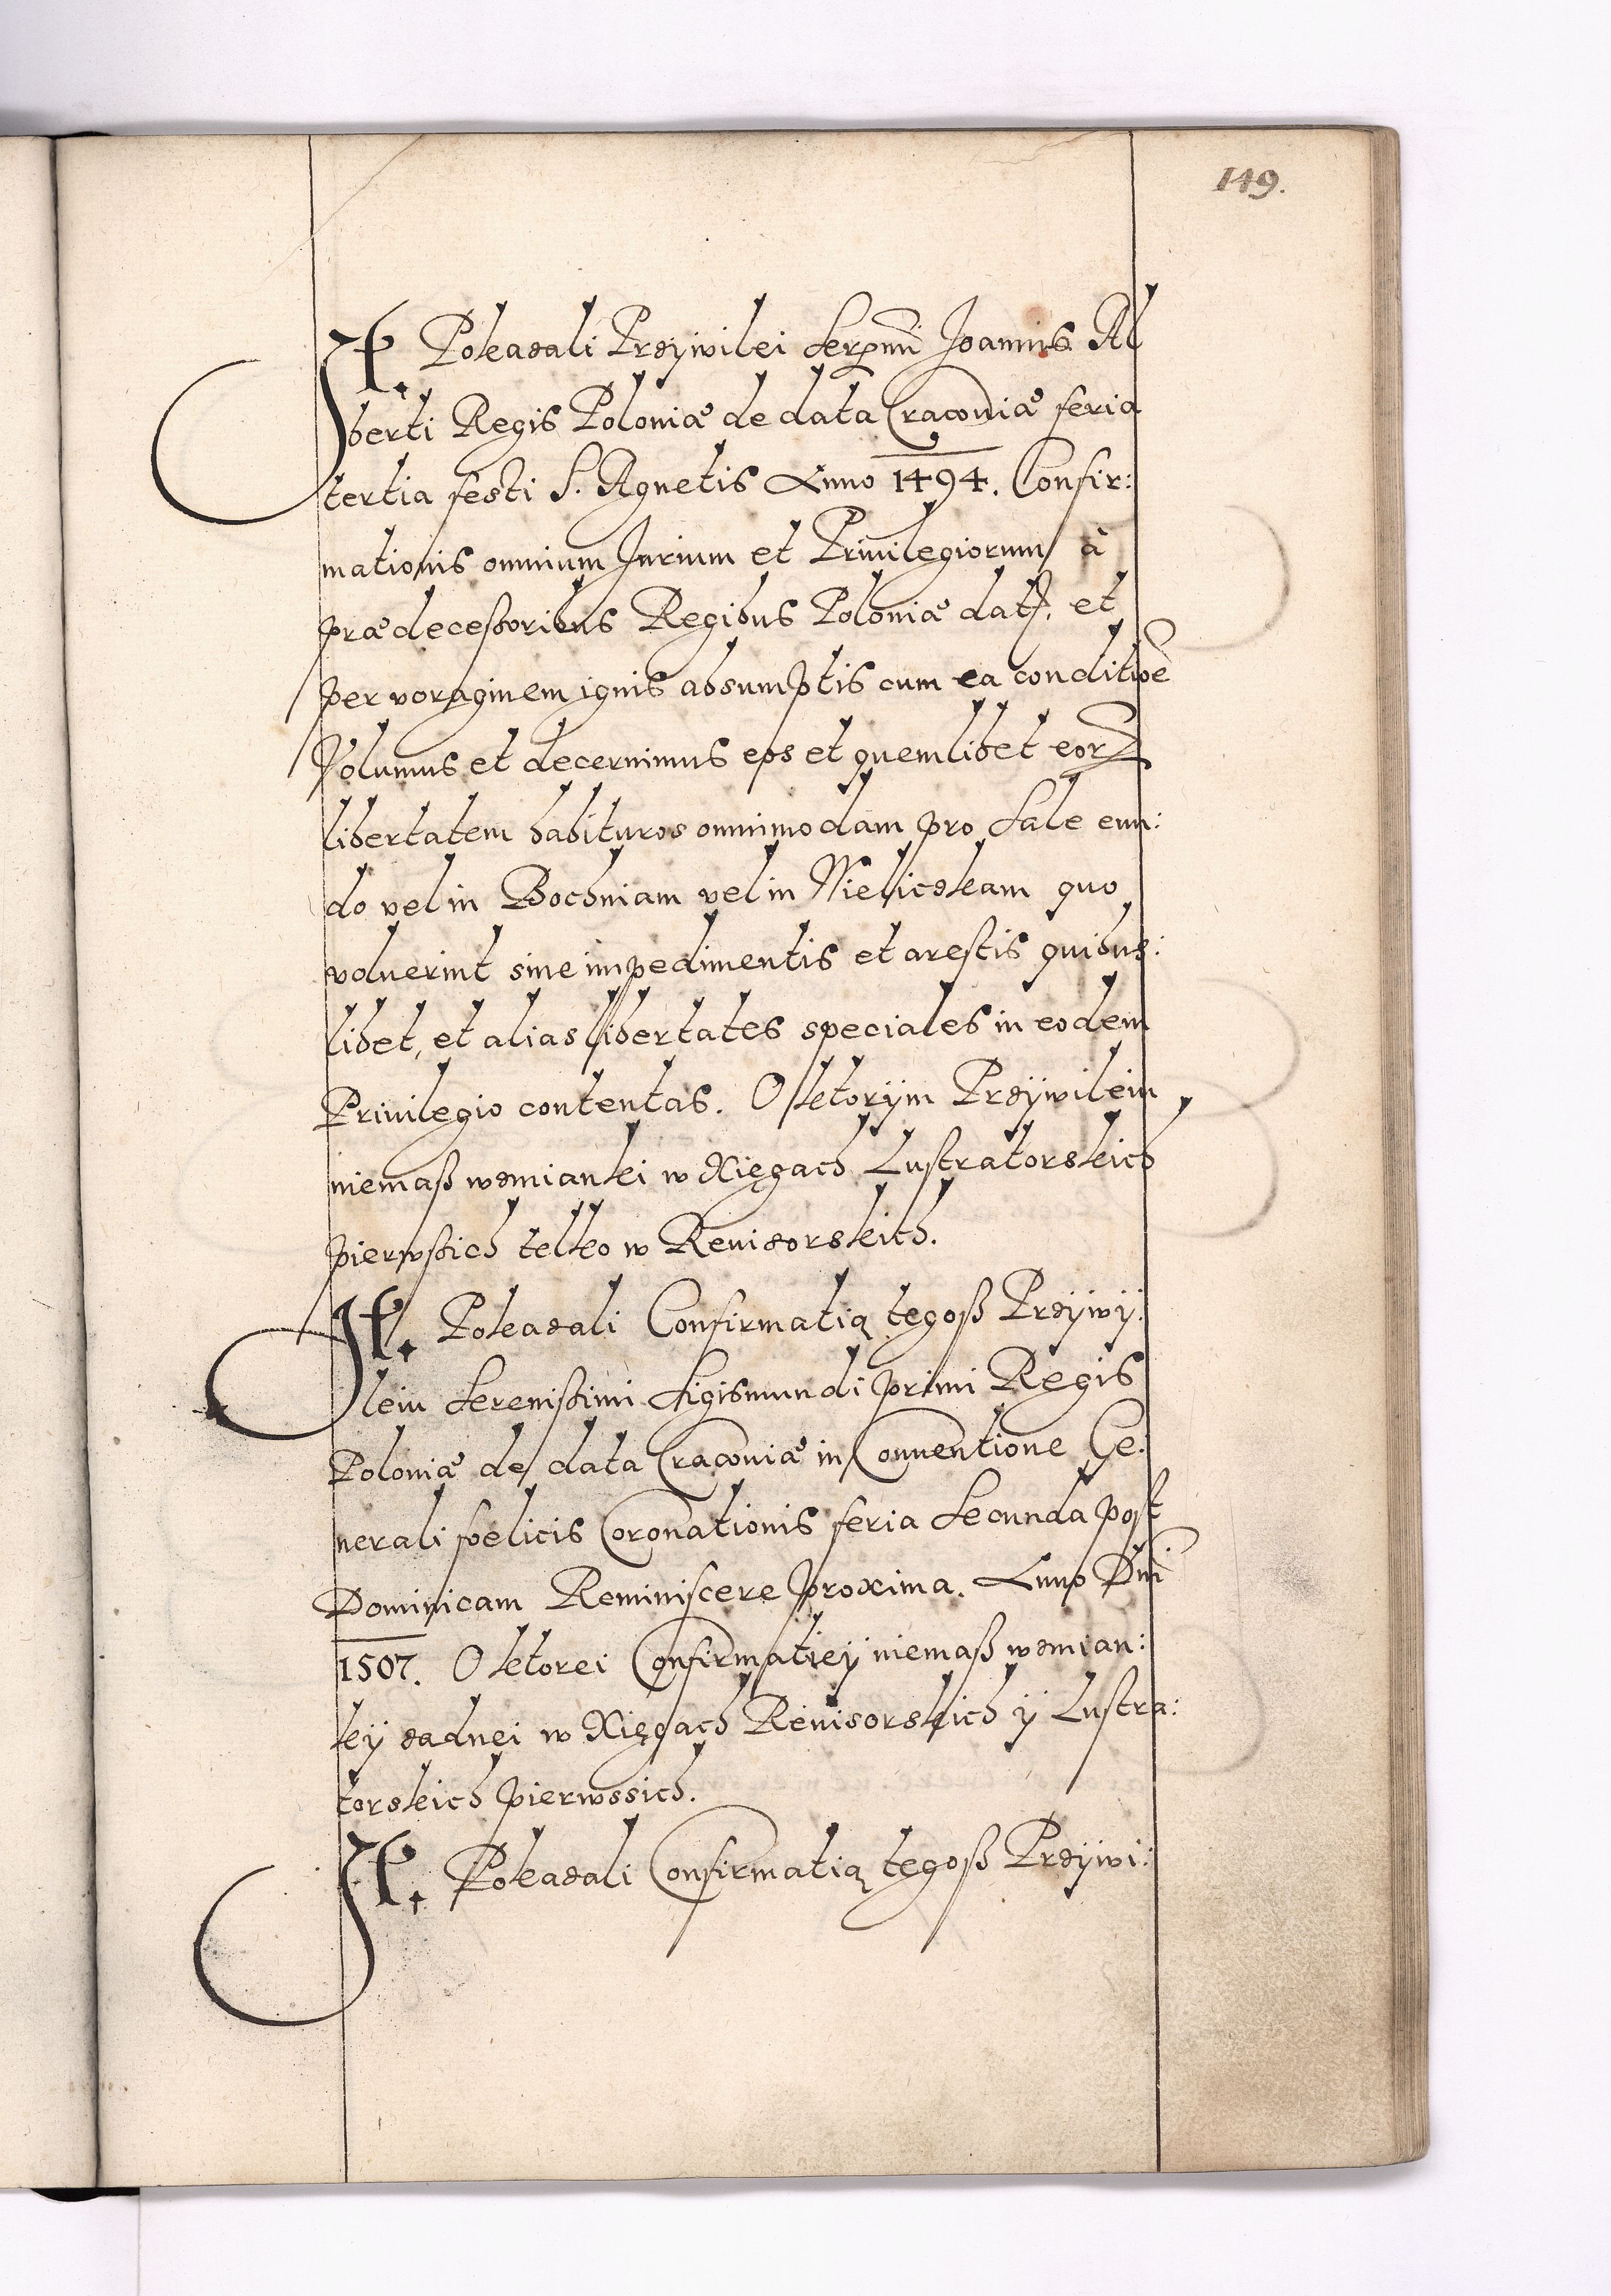 149.
It. Pokazali Przywilei Serenmi Joannis Al
berti Regis Poloniæ de data Cracoviæ feria
tertia festi S. Agnetis Anno 1494. Confir:
mationis omnium Jurium et Privilegiorum à
prædecessoribus Regibus Poloniæ dat. et
per voraginem ignis absumptis cum ea conditioē
Volumus et decernimus eos et quemlibet eorz
libertatem habituros omnimodam pro Sale eun:
do vel in Bochniam vel in Wieliczkam quo
voluerint sine impedimentis et arestis quibus:
libet, et alias libertates speciales in eodem
Privilegio contentas. O ktorym Przywileiu
niemaß wzmianki w Xięgach Lustratorskich
pierwßich telko w Revizorskich.
It. Pokazali Confirmatią tegoß Przywy:
leiu Serenißimi Sigismundi primi Regis
Poloniæ de data Cracoviæ in Conventione Ge:
nerali foelicis Coronationis feria Secunda post
Dominicam Reminiscere proxima. Anno Dni
1507. O ktorei Confirmatiey niemaß wzmian:
key zadnei w Xięgach Revisorskich y Lustra:
torskich pierwssich.
It. Pokazali Confirmatią tegoß Przywi: